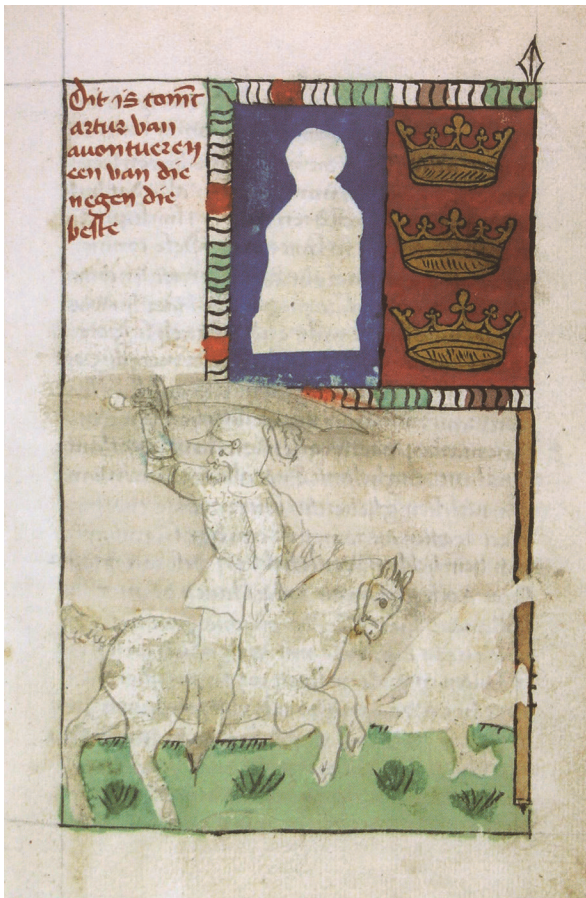 Dit is conīc
artur van
auontueren
een van die
negen die
beste